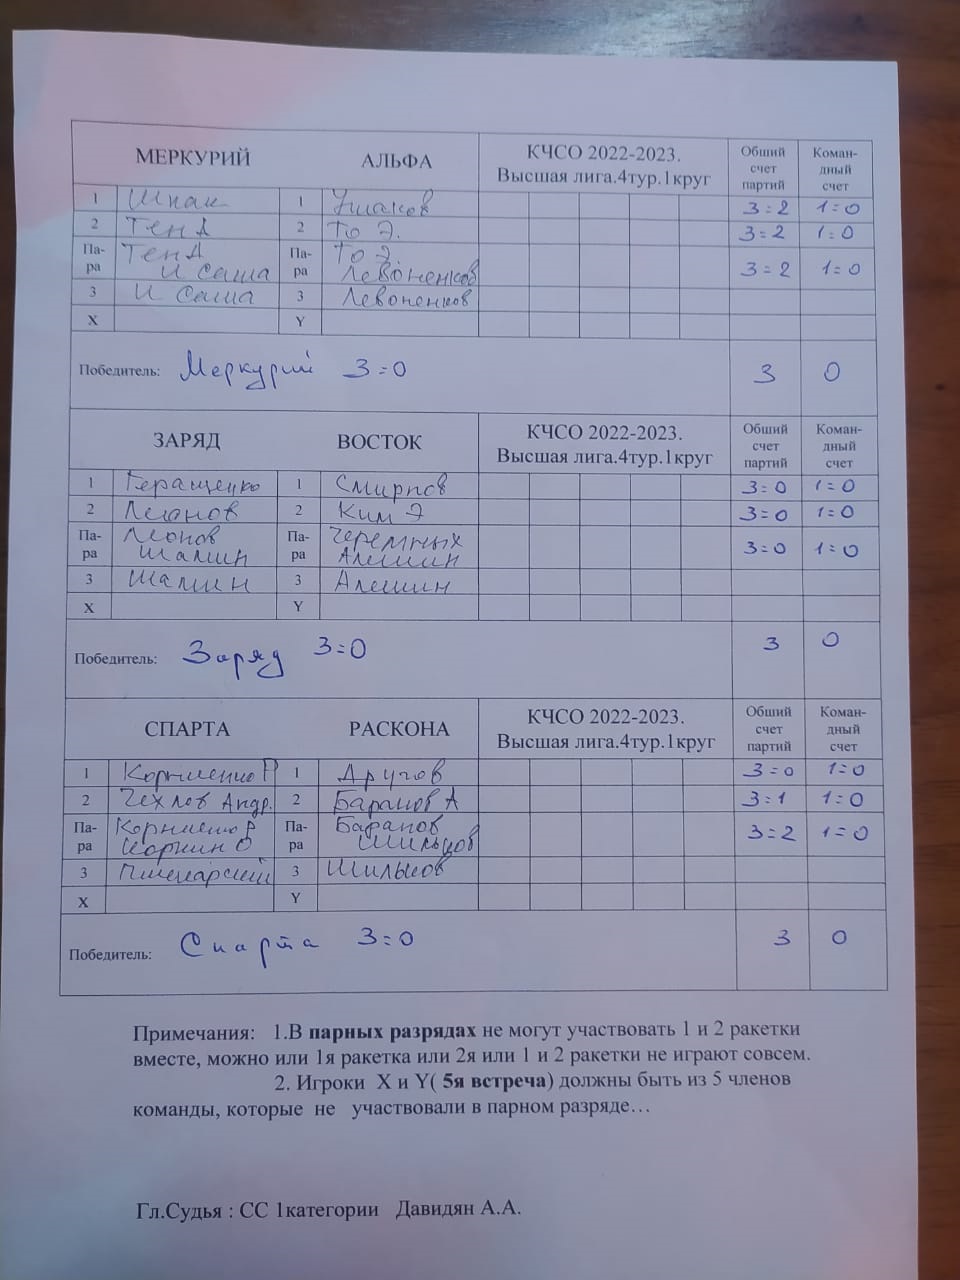 МЕРКУРИЙ АЛЬФА КЧСО 2022-2023. Высшая лига.4тур.1круг Общий счет партий Коман-дный счет
1 Шпак 1 Ушаков 3=2 1=0
2 Тен Д 2 То Э. 3=2 1=0
Па-ра Тен Д И Саша Па-ра То Э. Левоненков 3=2 1=0
3 И Саша 3 Левоненков
X Y
Победитель: Меркурий 3=0 3 0
ЗАРЯД ВОСТОК КЧСО 2022-2023. Высшая лига.4тур.1круг Общий счет партий Коман-дный счет
1 Геращенко 1 Смирнов 3=0 1=0
2 Леонов 2 Ким Э 3=0 1=0
Па-ра Леонов Шалин Па-ра Черемных Алешин 3=0 1=0
3 Шалин 3 Алешин
X Y
Победитель: Заряд 3=0 3 0
СПАРТА РАСКОНА КЧСО 2022-2023. Высшая лига.4тур.1круг Общий счет партий Коман-дный счет
1 Корниенко Р 1 Другов 3=0 1=0
2 Чехлов Андр. 2 Баранов А 3=1 1=0
Па-ра Корниенко Р Па-ра Баранов Шильцов 3=2 1=0
3 3
X Y
Победитель: Спарта 3=0 3 0
Примечания: 1.В парных разрядах не могут участвовать 1 и 2 ракетки
вместе, можно или 1я ракетка или 2я или 1 и 2 ракетки не играют совсем.
2. Игроки X и Y( 5я встреча) должны быть из 5 членов
команды, которые не участвовали в парном разряде…
Гл.Судья : СС 1категории Давидян А.А.